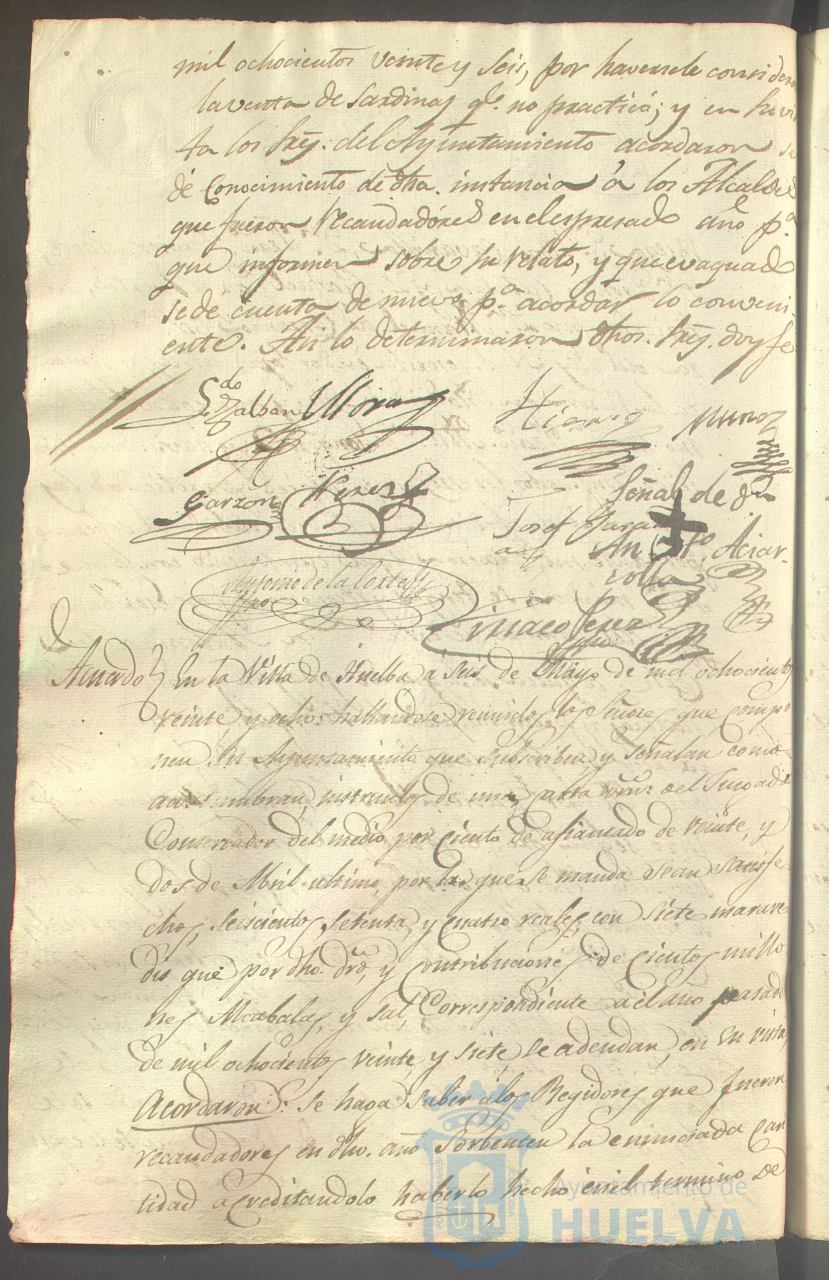 mil ochocientos veinte y seis, por haversele considera
la venta de sardinas qe. no practicó; y en su vis
ta los Sres. del Ayuntamiento acordaron se
dé Conocimiento de dha. instancia á los Alcaldes
que fueron recaudadóres en el espresado año pa.
que informen sobre su relato, y que evaquado
se de cuenta de nuevo pa. acordar lo conveni-
ente. Asi lo determinaron dhos. Srés. doy fe
Ldo. Zalban Mora Hierro Muñoz
Garzon Perez Señal de Dn
Josef Anto. Aciar-
rolla
Antonio de la Corte
Acuerdo En la Villa de Huelba a seis de Mayo de mil ochocientos
veinte y ocho: hallandose reunidos los Señores que compo
nen su Ayuntamiento que subscriben y señalan como
acostumbran, instruidos de una carta orn: del Juzgado
Conservador del medio por ciento de afianzado de veinte, y
dos de Abril ultimo, por la que se manda sean satisfe
chos, seiscientos, setenta, y cuatro reales, con siete marave
dis que por dho. dro, y contribuciones de cientos millo
nes Alcabalas, y sal, Correspondiente a el año pasado
de mil ochocientos veinte y siete, se adeudan, en su vista,
Acordaron: se haga saber a los Regidores que fueron
recaudadores en dho. año Solbenten la enunciada can
tidad acreditandolo haberlo hecho en el termino de
Ayuntamiento de
HUELVA